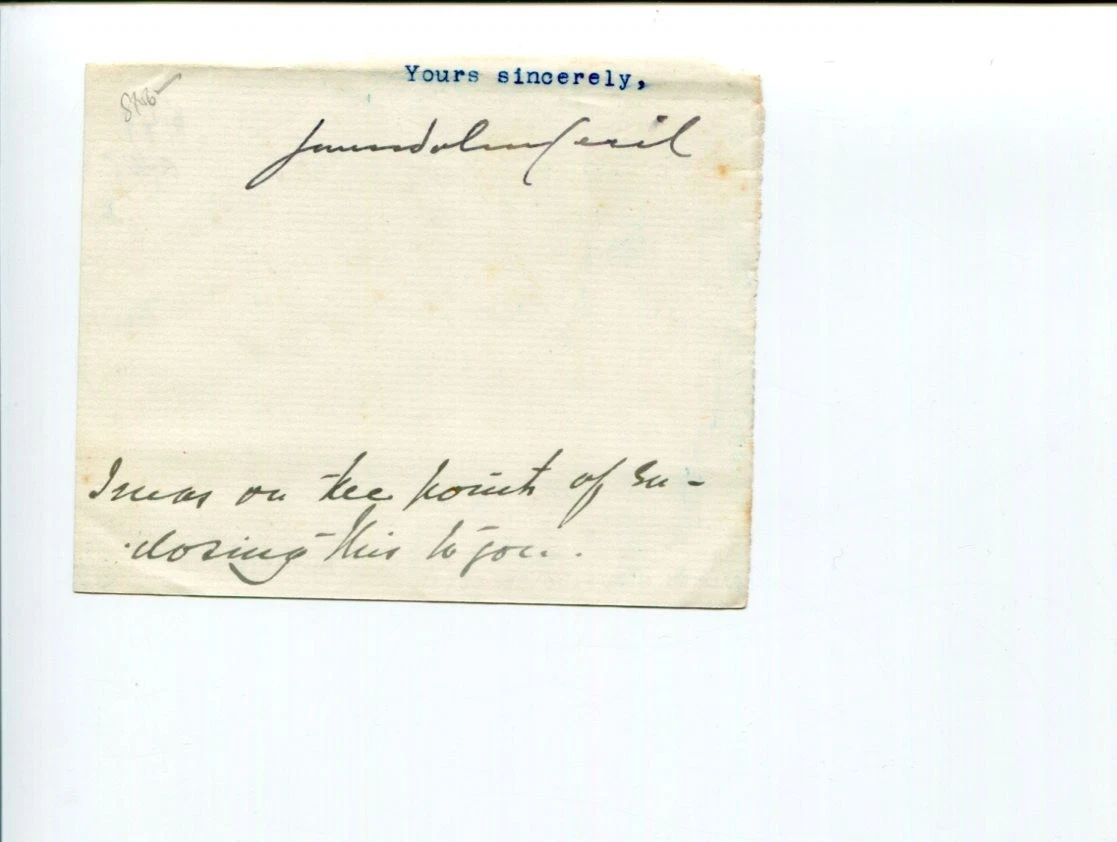 Yours sincerely,
Gwendolen Cecil
I was on the point of en-
closing this to you.